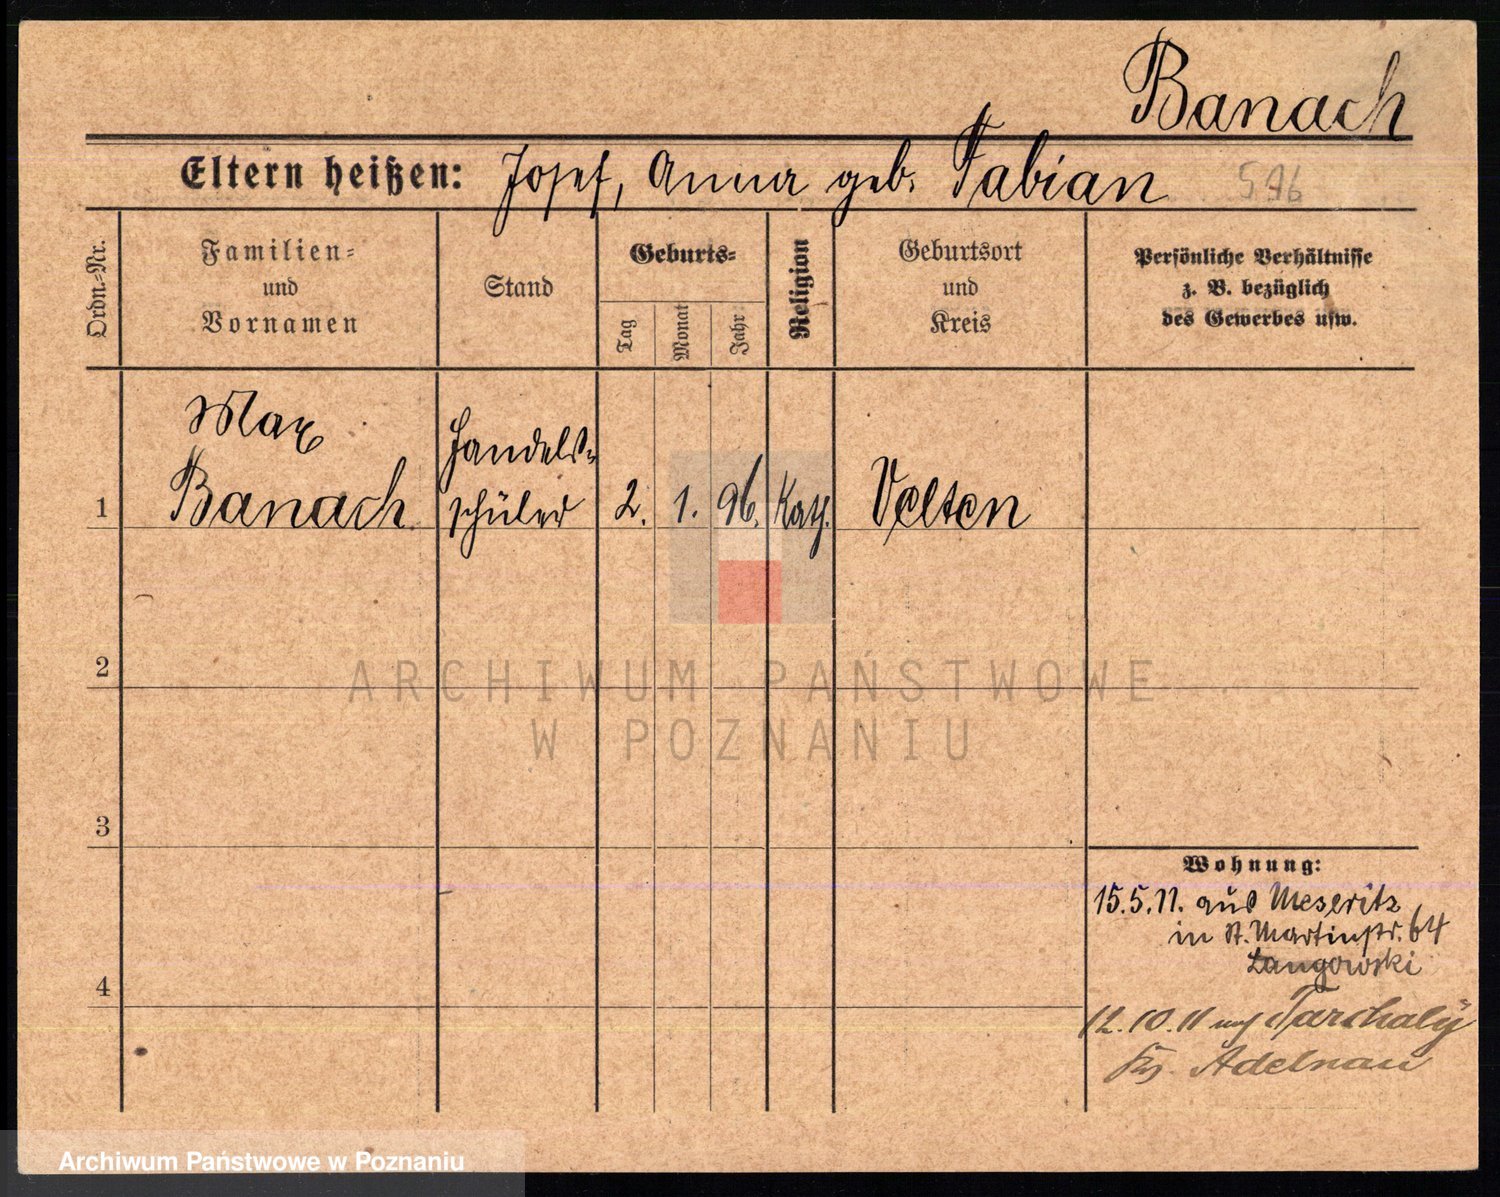 Banach
Eltern heißen: Josef, Anna geb. Fabian 596
Ordn.-Nr.
Familien-
und
Vornamen
Stand
Geburts-
Tag
Monat
Jahr
Religion
Geburtsort
und
Kreis
Persönliche Verhältnisse
z. B. bezüglich
des Gewerbes usw.
1
Max
Banach
Handels-
schüler
2. 1. 96. Kath. Velten
2
ARCHIWUM PAŃSTWOWE
W POZNANIU
3
4
Wohnung:
15.5.11. aus Meseritz
in St. Martinstr. 64
Langowski
12.10.11 Tarchaly
Kr. Adelnau
Archiwum Państwowe w Poznaniu